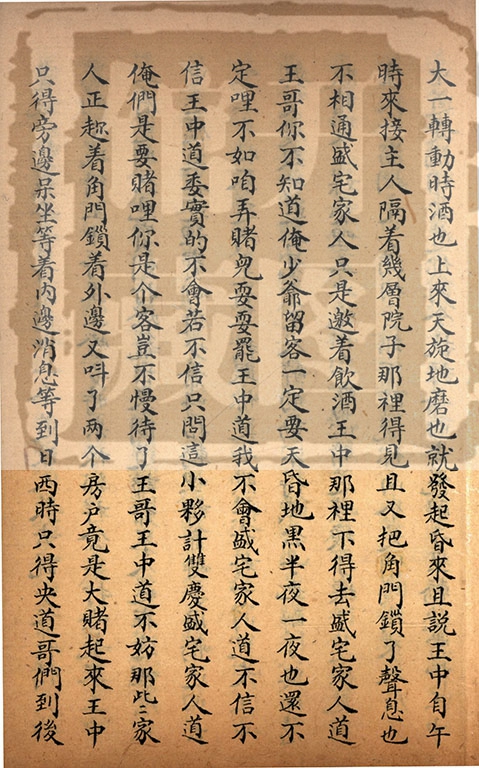 大一轉動時酒也上來天旋地磨也就發起昏來且說王中自午
時來接主人隔着幾層院子那裡得見且又把角門鎖了聲息也
不相通盛宅家人只是邀着飲酒王中那裡下得去盛宅家人道
王哥你不知道俺少爺留客一定要天昏地黑半夜一夜也還不
定哩不如咱弄賭兒耍耍罷王中道我不會盛宅家人道不信不
信王中道委實的不會若不信只問這小夥計雙慶盛宅家人道
俺們是要賭哩你是个客豈不慢待了王哥王中道不妨那此〻家
人正趂着角門鎖着外邊又呌了两个房户竟是大賭起來王中
只得旁邊呆坐等着內邊消息等到日西時只得央道哥們到後